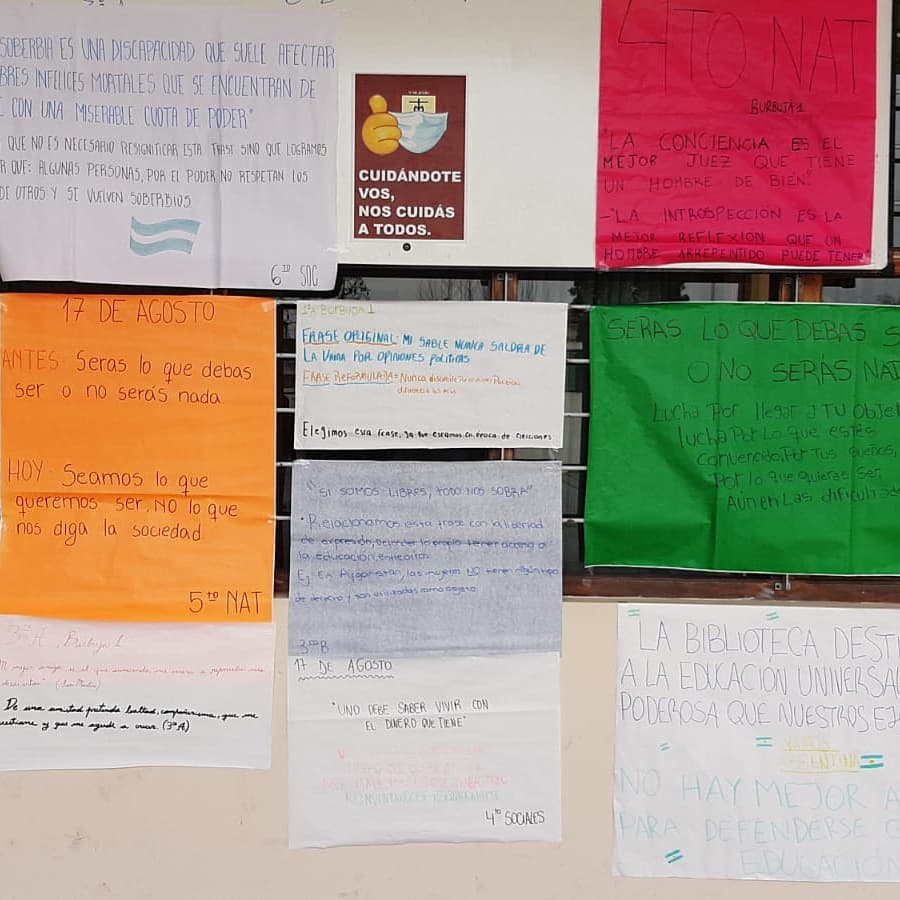 SOBERBIA ES UNA DISCAPACIDAD QUE SUELE AFECTAR
BRES INFELICES MORTALES QUE SE ENCUENTRAN DE
CON UNA MISERABLE CUOTA DE PODER"
QUE NO ES NECESARIO RESIGNIFICAR ESTA FRASE SINO QUE LOGRAMOS
R QUE: ALGUNAS PERSONAS, POR EL PODER NO RESPETAN LOS
DE OTROS Y SE VUELVEN SOBERBIOS
6TO SOC
CUIDÁNDOTE
VOS,
NOS CUIDÁS
A TODOS.
4TO NAT
BURBUJA 1
"LA CONCIENCIA ES EL
MEJOR JUEZ QUE TIENE
UN HOMBRE DE BIEN"
-"LA INTROSPECCIÓN ES LA
MEJOR REFLEXIÓN QUE UN
HOMBRE ARREPENTIDO PUEDE TENER"
17 DE AGOSTO
ANTES: Seras lo que debas
ser o no serás nada
HOY: Seamos lo que
queremos ser, NO lo que
nos diga la sociedad
5to NAT
BURBUJA 1
FRASE ORIGINAL: MI SABLE NUNCA SALDRA DE
LA VAINA POR OPINIONES POLITICAS
FRASE REFORMULADA: Nunca
Elegimos esta frase, ya que estamos en época de elecciones
"SERAS LO QUE DEBAS S
O NO SERÁS NAD
Lucha Por llegar a TU Objet
lucha Por Lo que estés
convencido, Por Tus sueños,
Por lo que quieras Ser
Aún en Las dificultade
"SI SOMOS LIBRES, TODO NOS SOBRA"
Relacionamos esta frase con la libertad
de expresión, defender lo propio, tener acceso a
la educación, entre otros
Ej: En Afganistán, las mujeres NO tienen algún tipo
de derecho y son utilizadas como objeto
3roB
A, Burbuja 1
(San Martín)
De una amistad pretendo lealtad, compañerismo, que me
y que me ayude a crecer. (3°A)
17 DE AGOSTO
"UNO DEBE SABER VIVIR CON
EL DINERO QUE TIENE"
4to SOCIALES
LA BIBLIOTECA DESTI
A LA EDUCACIÓN UNIVERSA
PODEROSA QUE NUESTROS EJ
ENTINA
NO HAY MEJOR A
PARA DEFENDERSE
EDUCACIÓN